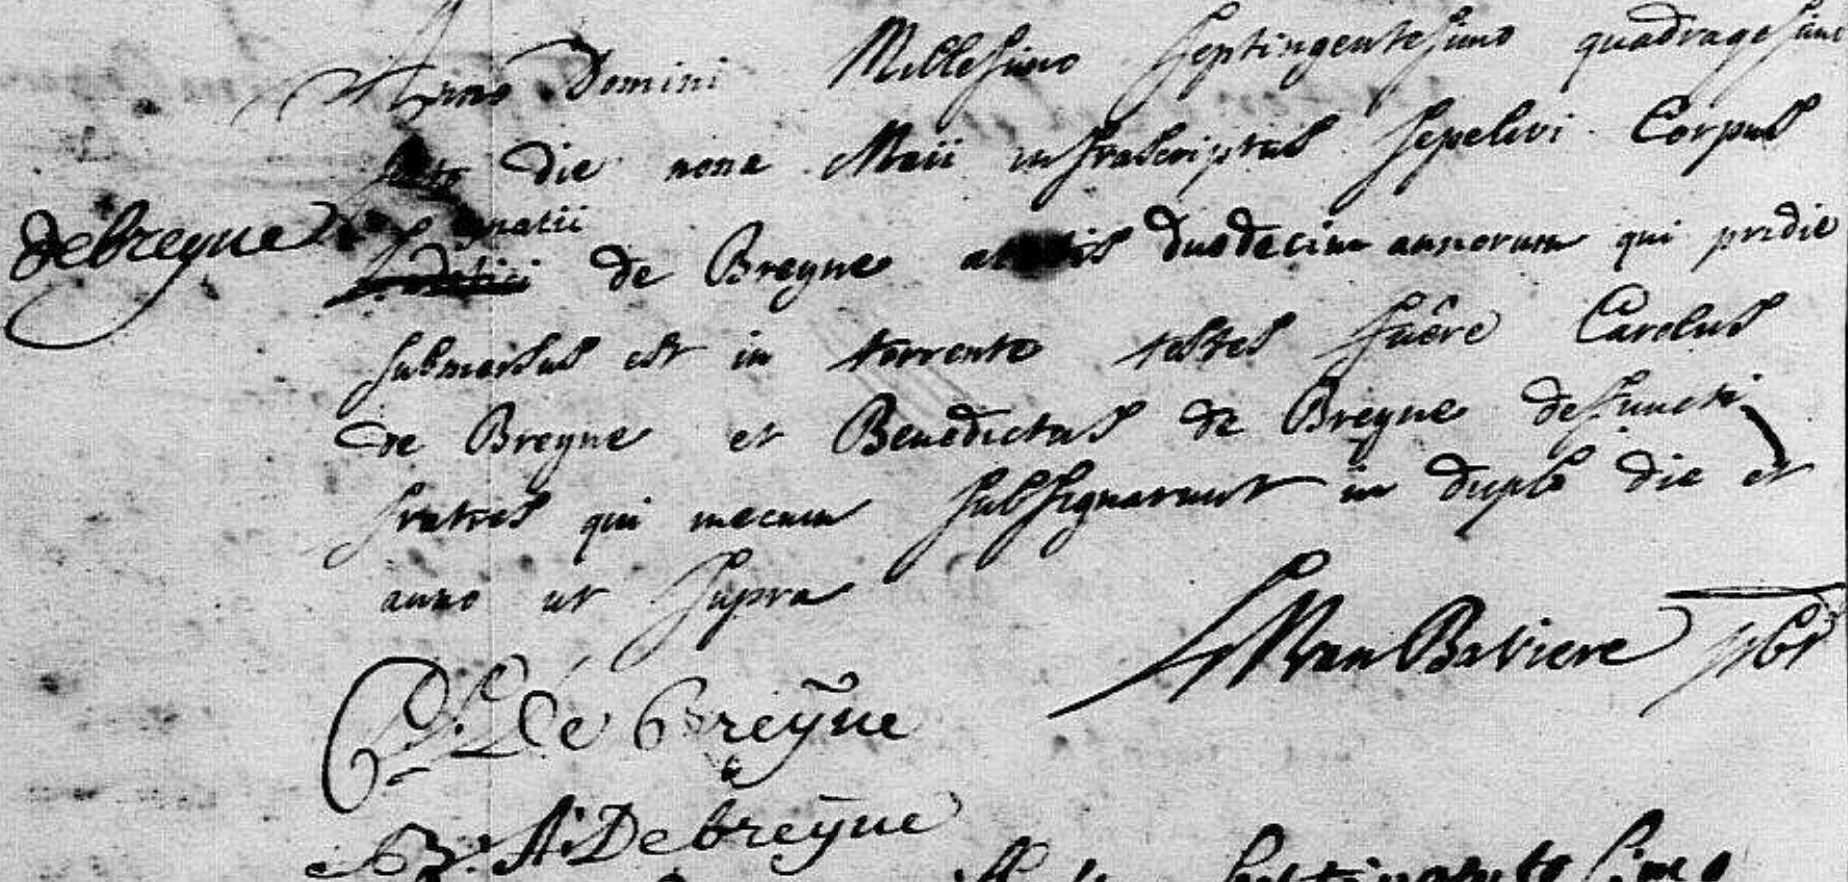 Anno Domini Millesimo septingentesimo quadragesimo
sexto die nona Maii infrascriptus sepelivi Corpus
debreyne
Ignatii
de Breyne aetatis duodecim annorum qui pridie
submersus est in torrente testes fuêre Carolus
de Breyne et Benedictus de Breyne defuncti
fratres qui mecum subsignarunt in duplo die et
anno ut supra
Van Baviere pbr
De Breÿne
Debreÿne
septingentesimo